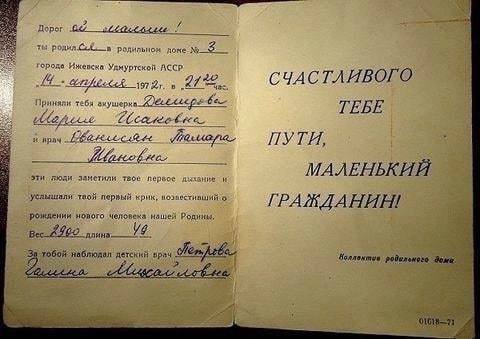 Дорогой малыш!
ты родился в родильном доме № 3
города Ижевска Удмуртской АССР
"14" апреля 1972г. в "21 20" час.
Приняли тебя акушерка Демидова
Мария Исаковна
и врач Ованисян Тамара
Ивановна
эти люди заметили твое первое дыхание и
услышали твой первый крик, возвестивший о
рождении нового человека нашей Родины.
Вес 2900 длина 49
За тобой наблюдал детский врач Петрова
Галина Михайловна
СЧАСТЛИВОГО
ТЕБЕ
ПУТИ,
МАЛЕНЬКИЙ
ГРАЖДАНИН!
Коллектив родильного дома
01618—71